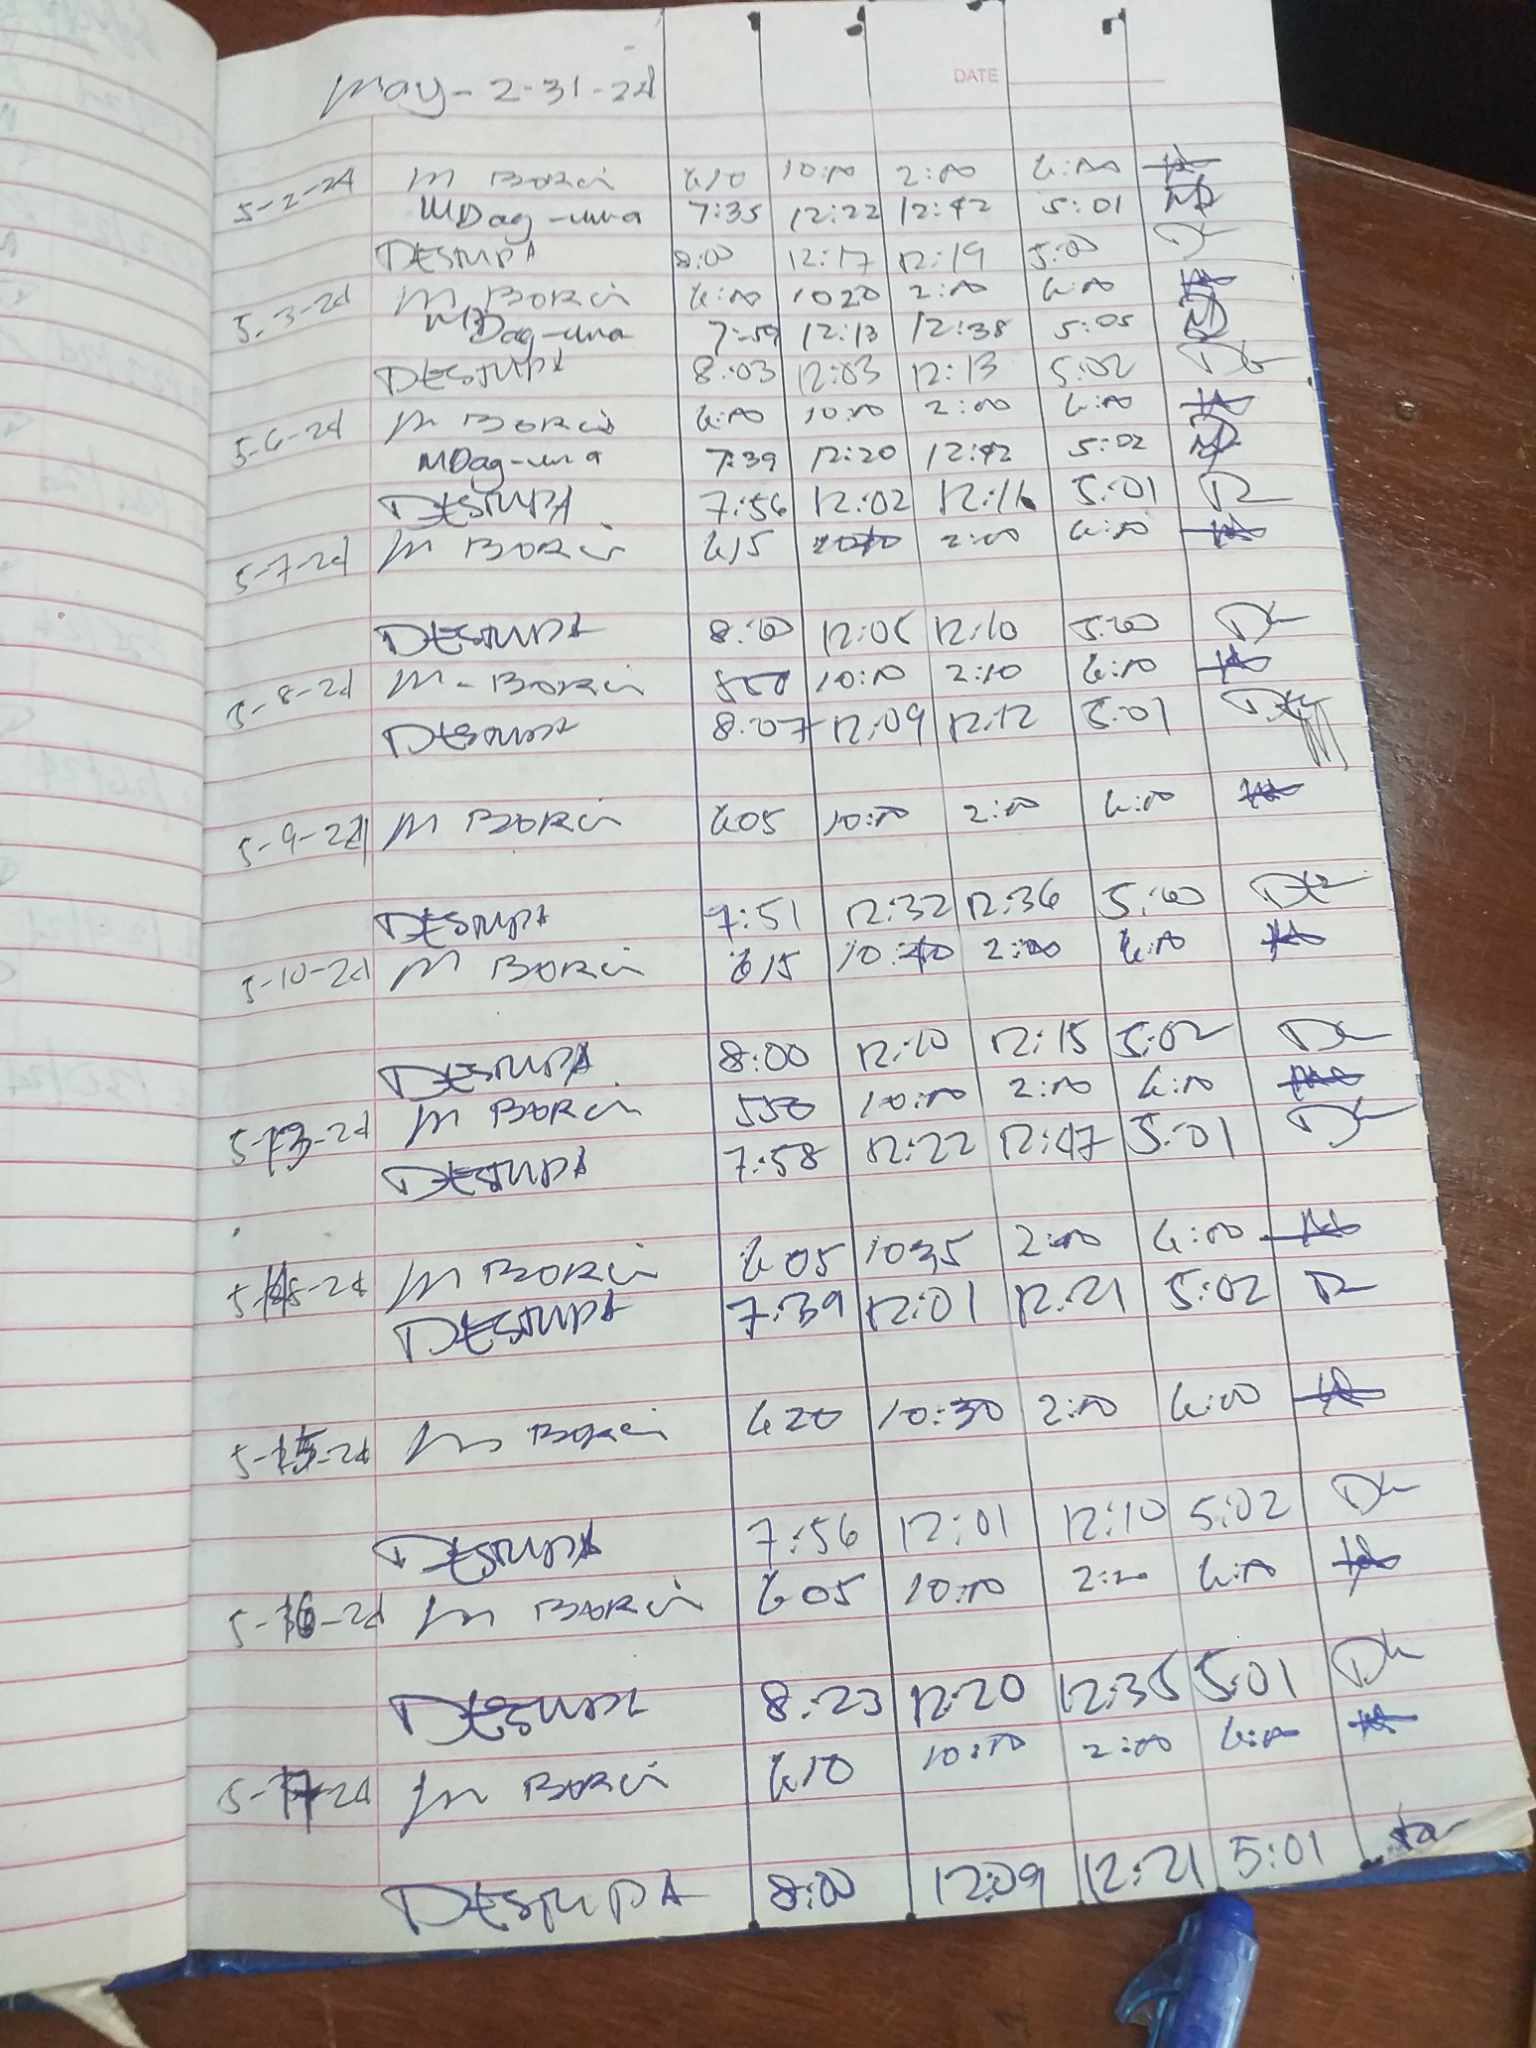 May - 2-31-24
DATE
5-2-24 M Borci 6:10 10:00 2:00 6:00
MDag-una 7:35 12:22 12:42 5:01 MD
DESTUPA 8:00 12:17 12:19 5:00
5-3-24 M Borci 6:00 1020 2:00 6:00
MDag-una 7:59 12:13 12:38 5:05 MD
DESTUPA 8:03 12:03 12:13 5:02
5-6-24 M Borci 6:00 10:00 2:00 6:00
MDag-una 7:39 12:20 12:42 5:02 MD
DESTUPA 7:56 12:02 12:16 5:01
5-7-24 M Borci 615 2:00 6:00
DESTUPA 8:00 12:05 12:10 5:00
5-8-24 M - Borci 550 10:00 2:10 6:00
DESTUPA 8:07 12:09 12:12 5:01
5-9-24 M Borci 605 10:00 2:00 6:00
DESTUPA 7:51 12:32 12:36 5:00
5-10-24 M Borci 615 10:10 2:00 6:00
DESTUPA 8:00 12:10 12:15 5:02
5-13-24 M Borci 550 10:00 2:00 6:00
DESTUPA 7:58 12:22 12:47 5:01
M Borci 605 1035 2:00 6:00
DESTUPA 7:39 12:01 12:21 5:02
5-15-24 M Borci 620 10:30 2:00 6:00
DESTUPA 7:56 12:01 12:10 5:02
5-16-24 M Borci 605 10:00 2:00 6:00
DESTUPA 8:23 12:20 12:35 5:01
5-17-24 M Borci 610 10:00 2:00 6:00
DESTUPA 8:00 12:09 12:21 5:01